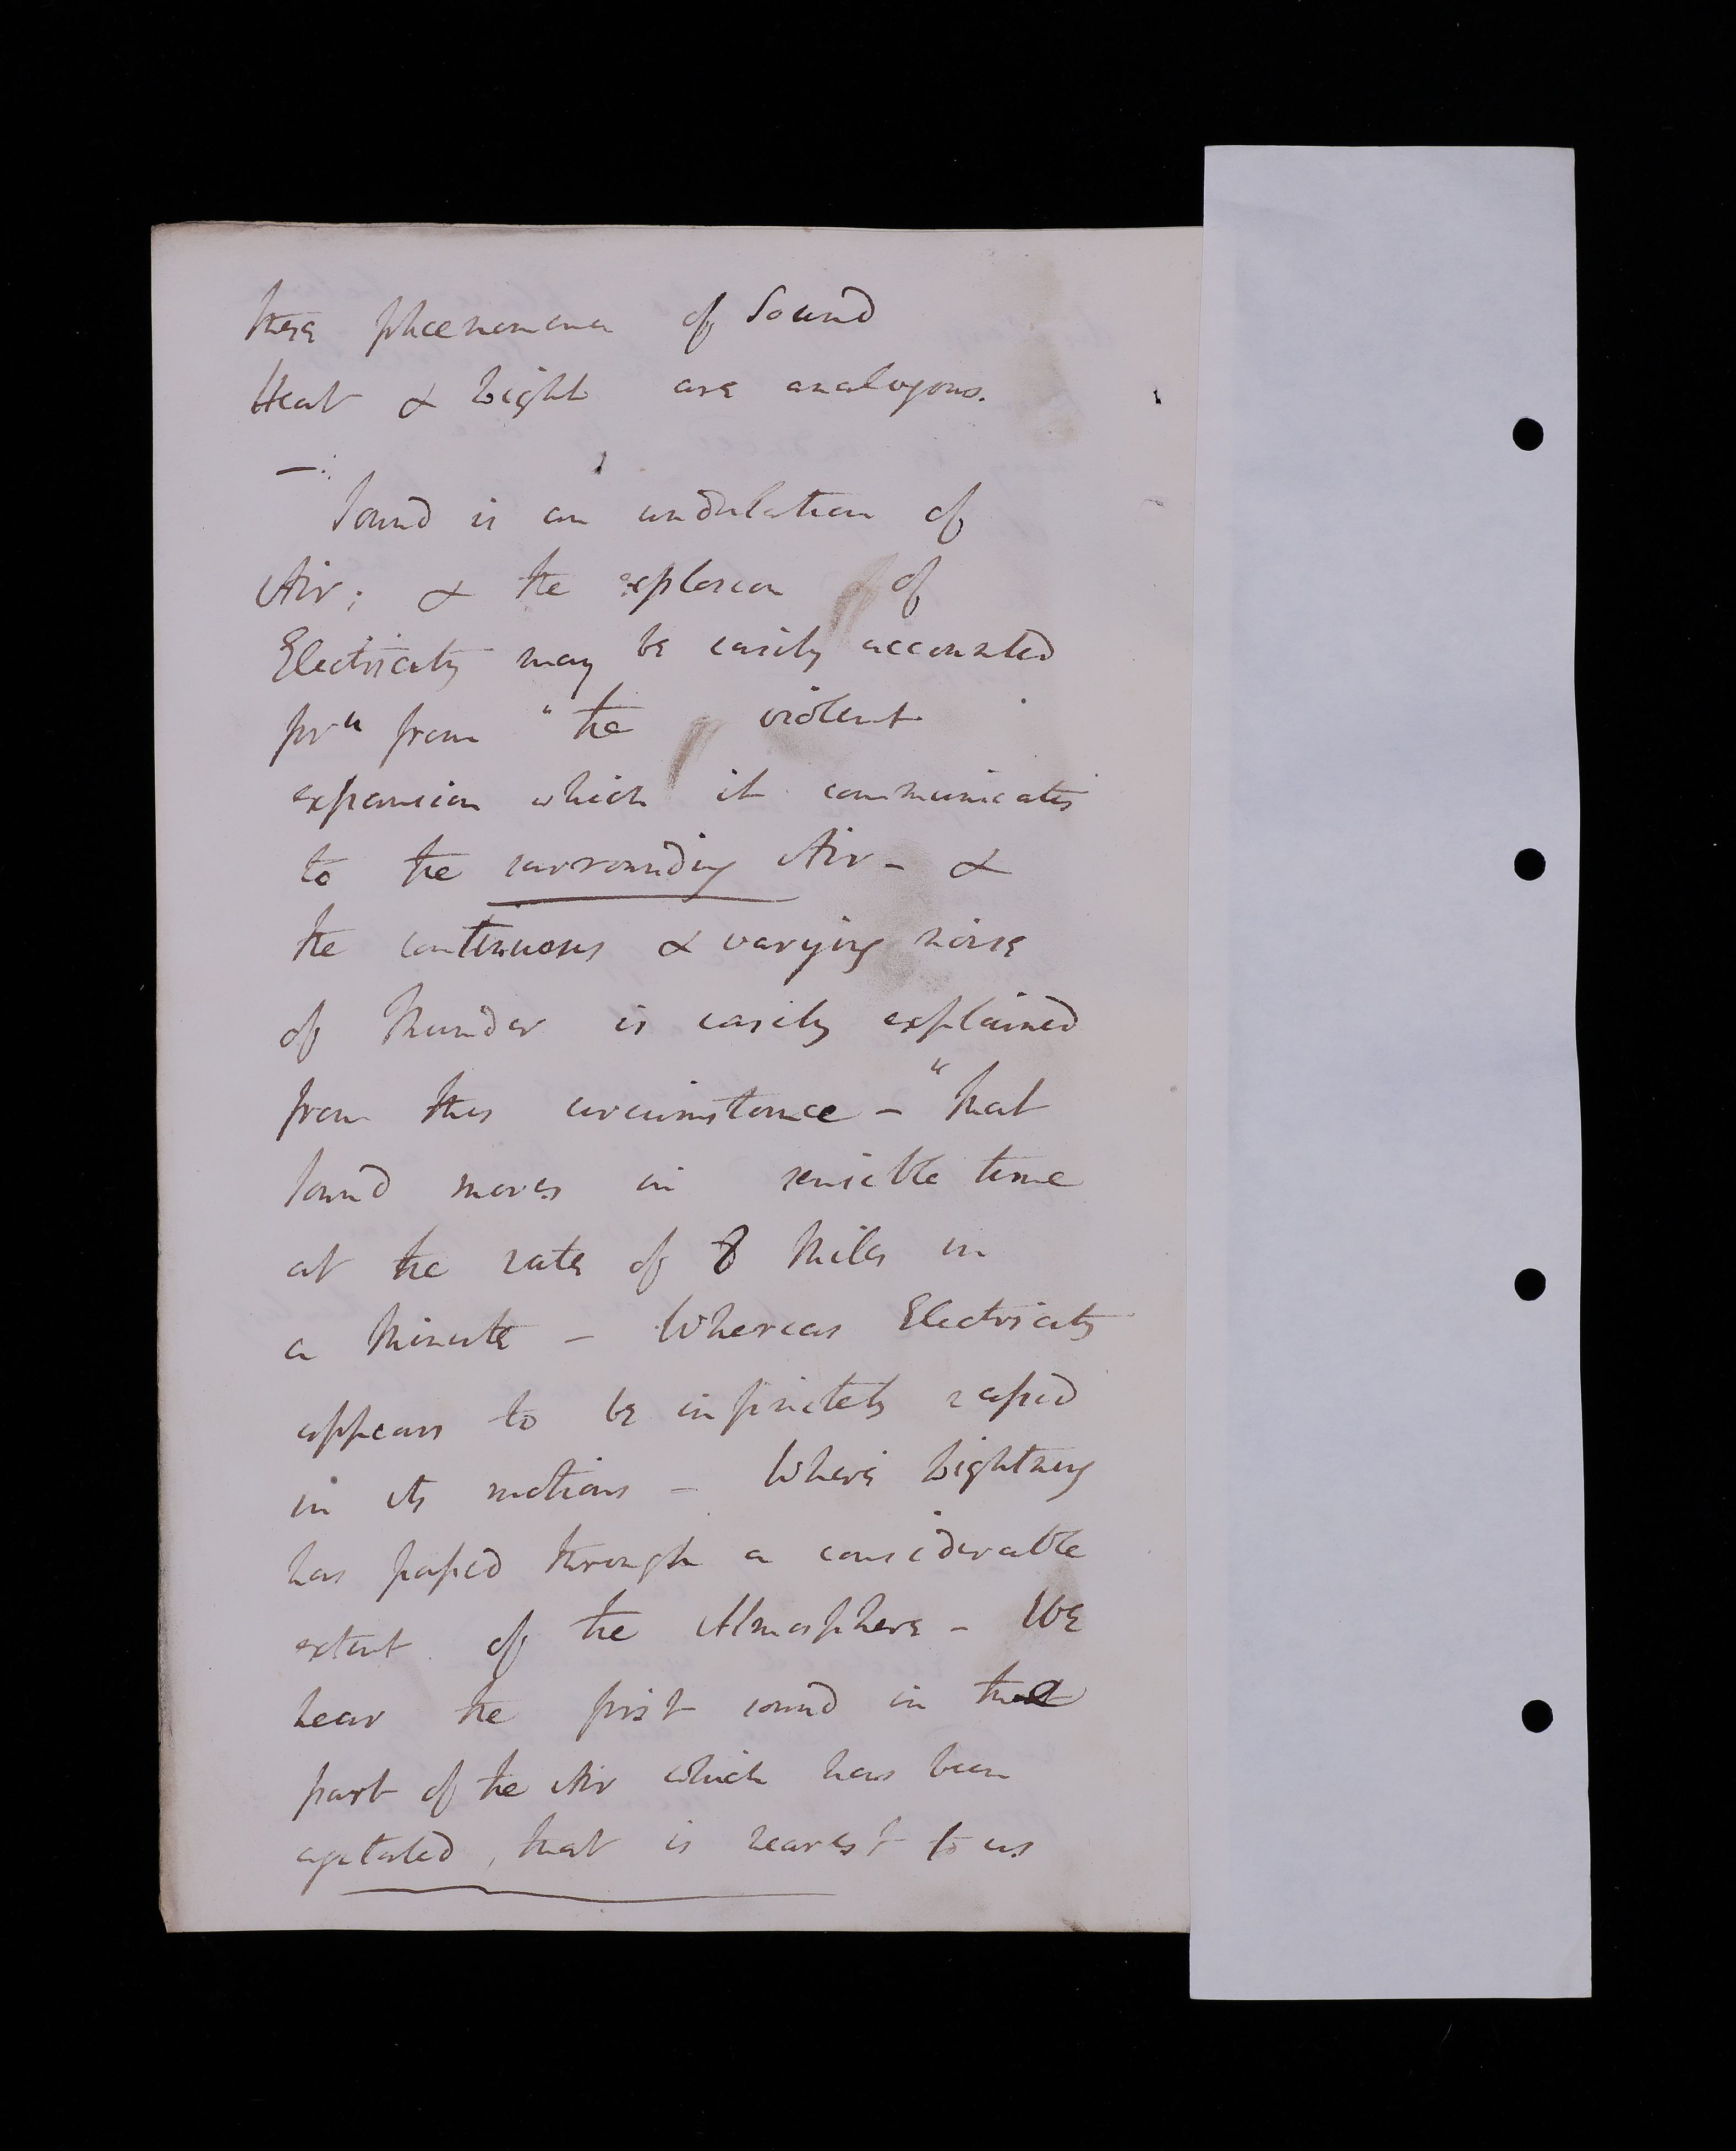 these phœnomena of Sound
Heat & Light are analogous.
—:
Sound is an undulation of
Air; & the explosion of
Electricity may be easily accounted
for" from "the violent
expansion which it communicates
to the surrounding Air - &
the continuous & varying noise
of Thunder is easily explained
from this circumstance - "that
Sound moves in sensible time
at the rate of 8 Miles in
a Minute - Whereas Electricity
appears to be infinitely rapid
in its motions - Where Lightning
has paſsed through a considerable
extent of the Atmosphere - We
hear the first sound in that
part of the Air which has been
agitated, that is nearest to us